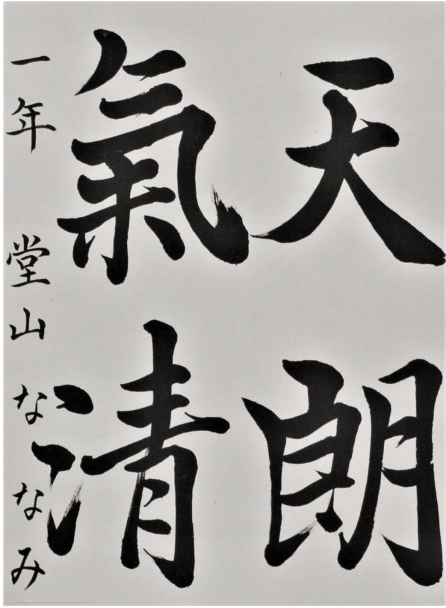 天朗
氣清
一年 堂山 ななみ